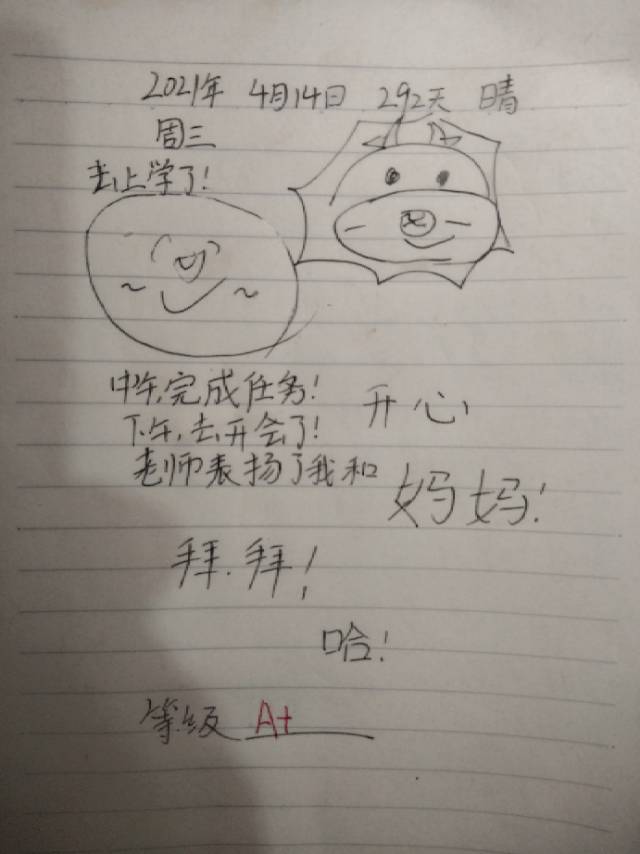 2021年 4月14日 292天 晴
周三
去上学了!
中午,完成任务! 开心
下午,去开会了!
老师表扬了我和妈妈!
拜.拜!
哈!
等级 A+